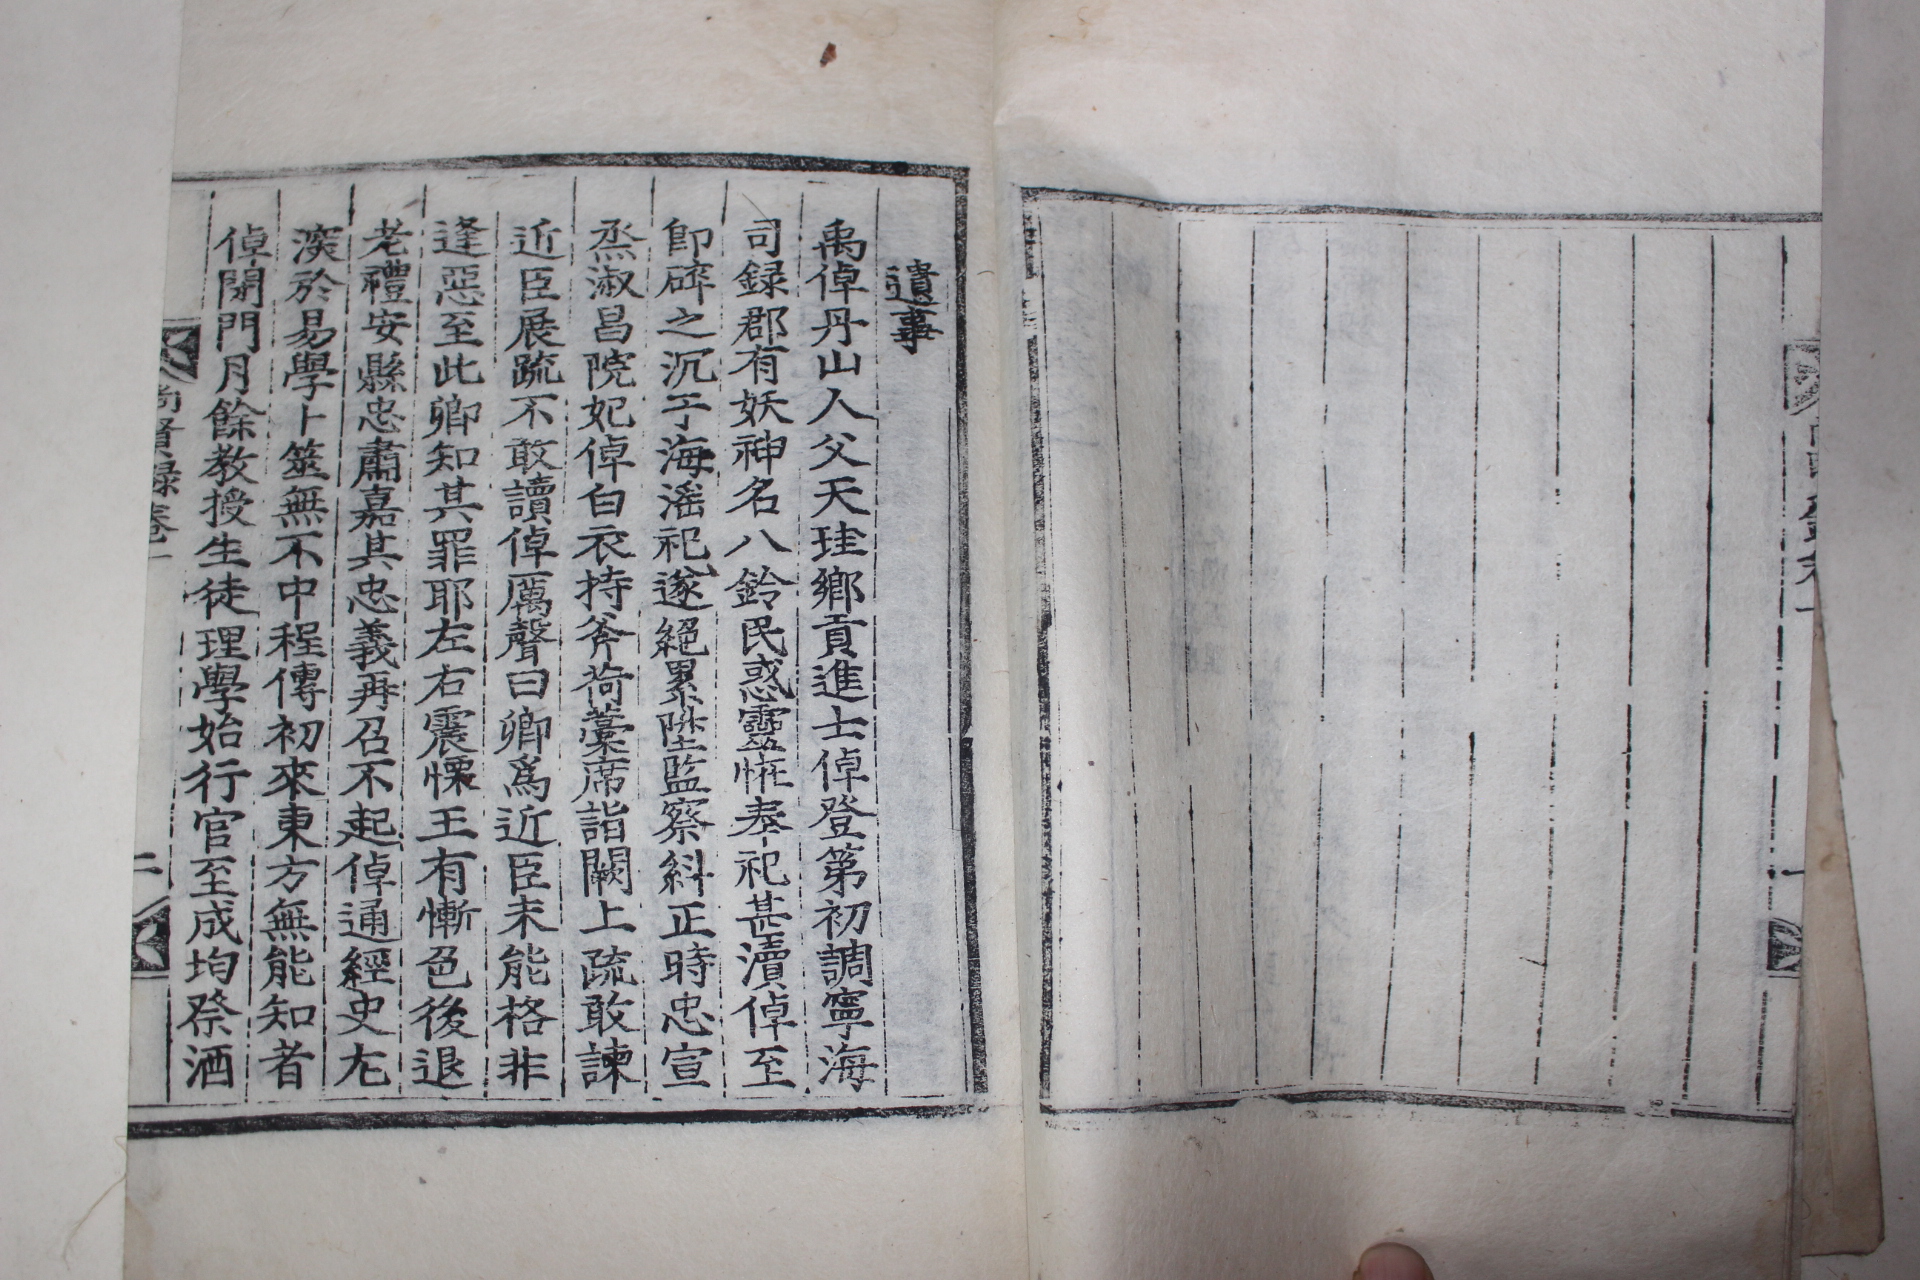 遺事
禹倬丹山人父天珪鄕貢進士倬登第初調寧海
司録郡有妖神名八鈴民惑靈恠奉祀甚瀆倬至
卽碎之沉于海滛祀遂絕累陞監察糾正時忠宣
烝淑昌院妃倬白衣持斧荷藁席詣闕上疏敢諫
近臣展疏不敢讀倬厲聲曰卿爲近臣未能格非
逢惡至此卿知其罪耶左右震慄王有慚色後退
老禮安縣忠肅嘉其忠義再召不起倬通經史尤
深於易學卜筮無不中程傳初來東方無能知者
倬閉門月餘教授生徒理學始行官至成均祭酒
尚賢録卷一
二